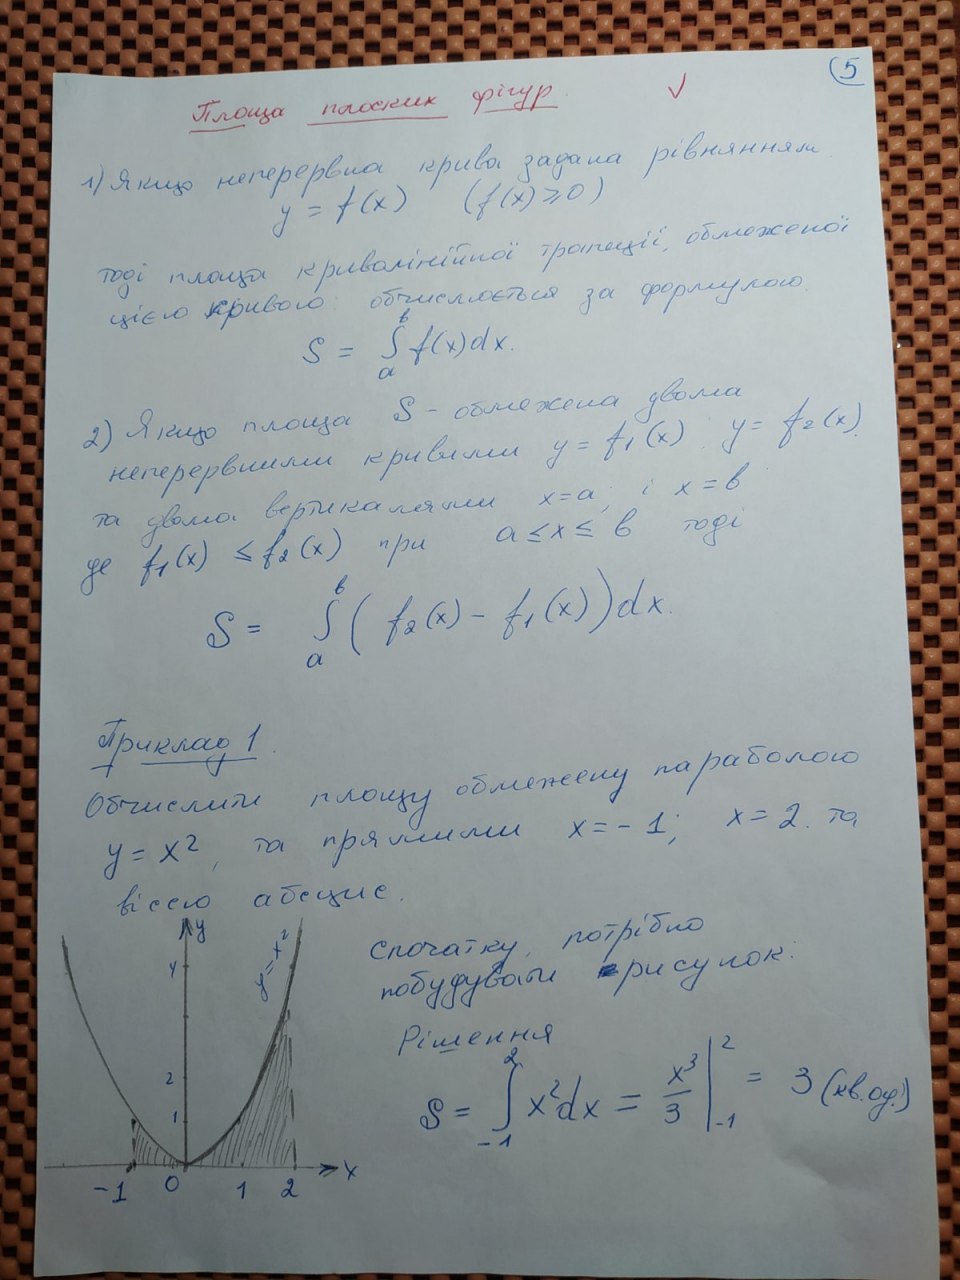 5
Площа плоских фігур. ✓
1) Якщо неперервна крива задана рівнянням
y = f(x) (f(x) ≥ 0)
тоді площа криволінійної трапеції, обмеженої
цією кривою: обчислюється за формулою.
S = ∫ₐᵇ f(x)dx.
2) Якщо площа S - обмежена двома
неперервними кривими y = f₁(x) y = f₂(x)
та двома вертикалями x=a; і x=b
де f₁(x) ≤ f₂(x) при a ≤ x ≤ b тоді
S = ∫ₐᵇ (f₂(x) - f₁(x))dx.
Приклад 1.
Обчислити площу обмежену параболою
y = x², та прямими x = -1; x = 2. та
віссю абсцис.
спочатку, потрібно
побудувати рисунок.
Рішення
S = ∫₋₁² x²dx = x³/3 |₋₁² = 3 (кв.од.)
y
y = x²
4
2
1
-1 0 1 2 x